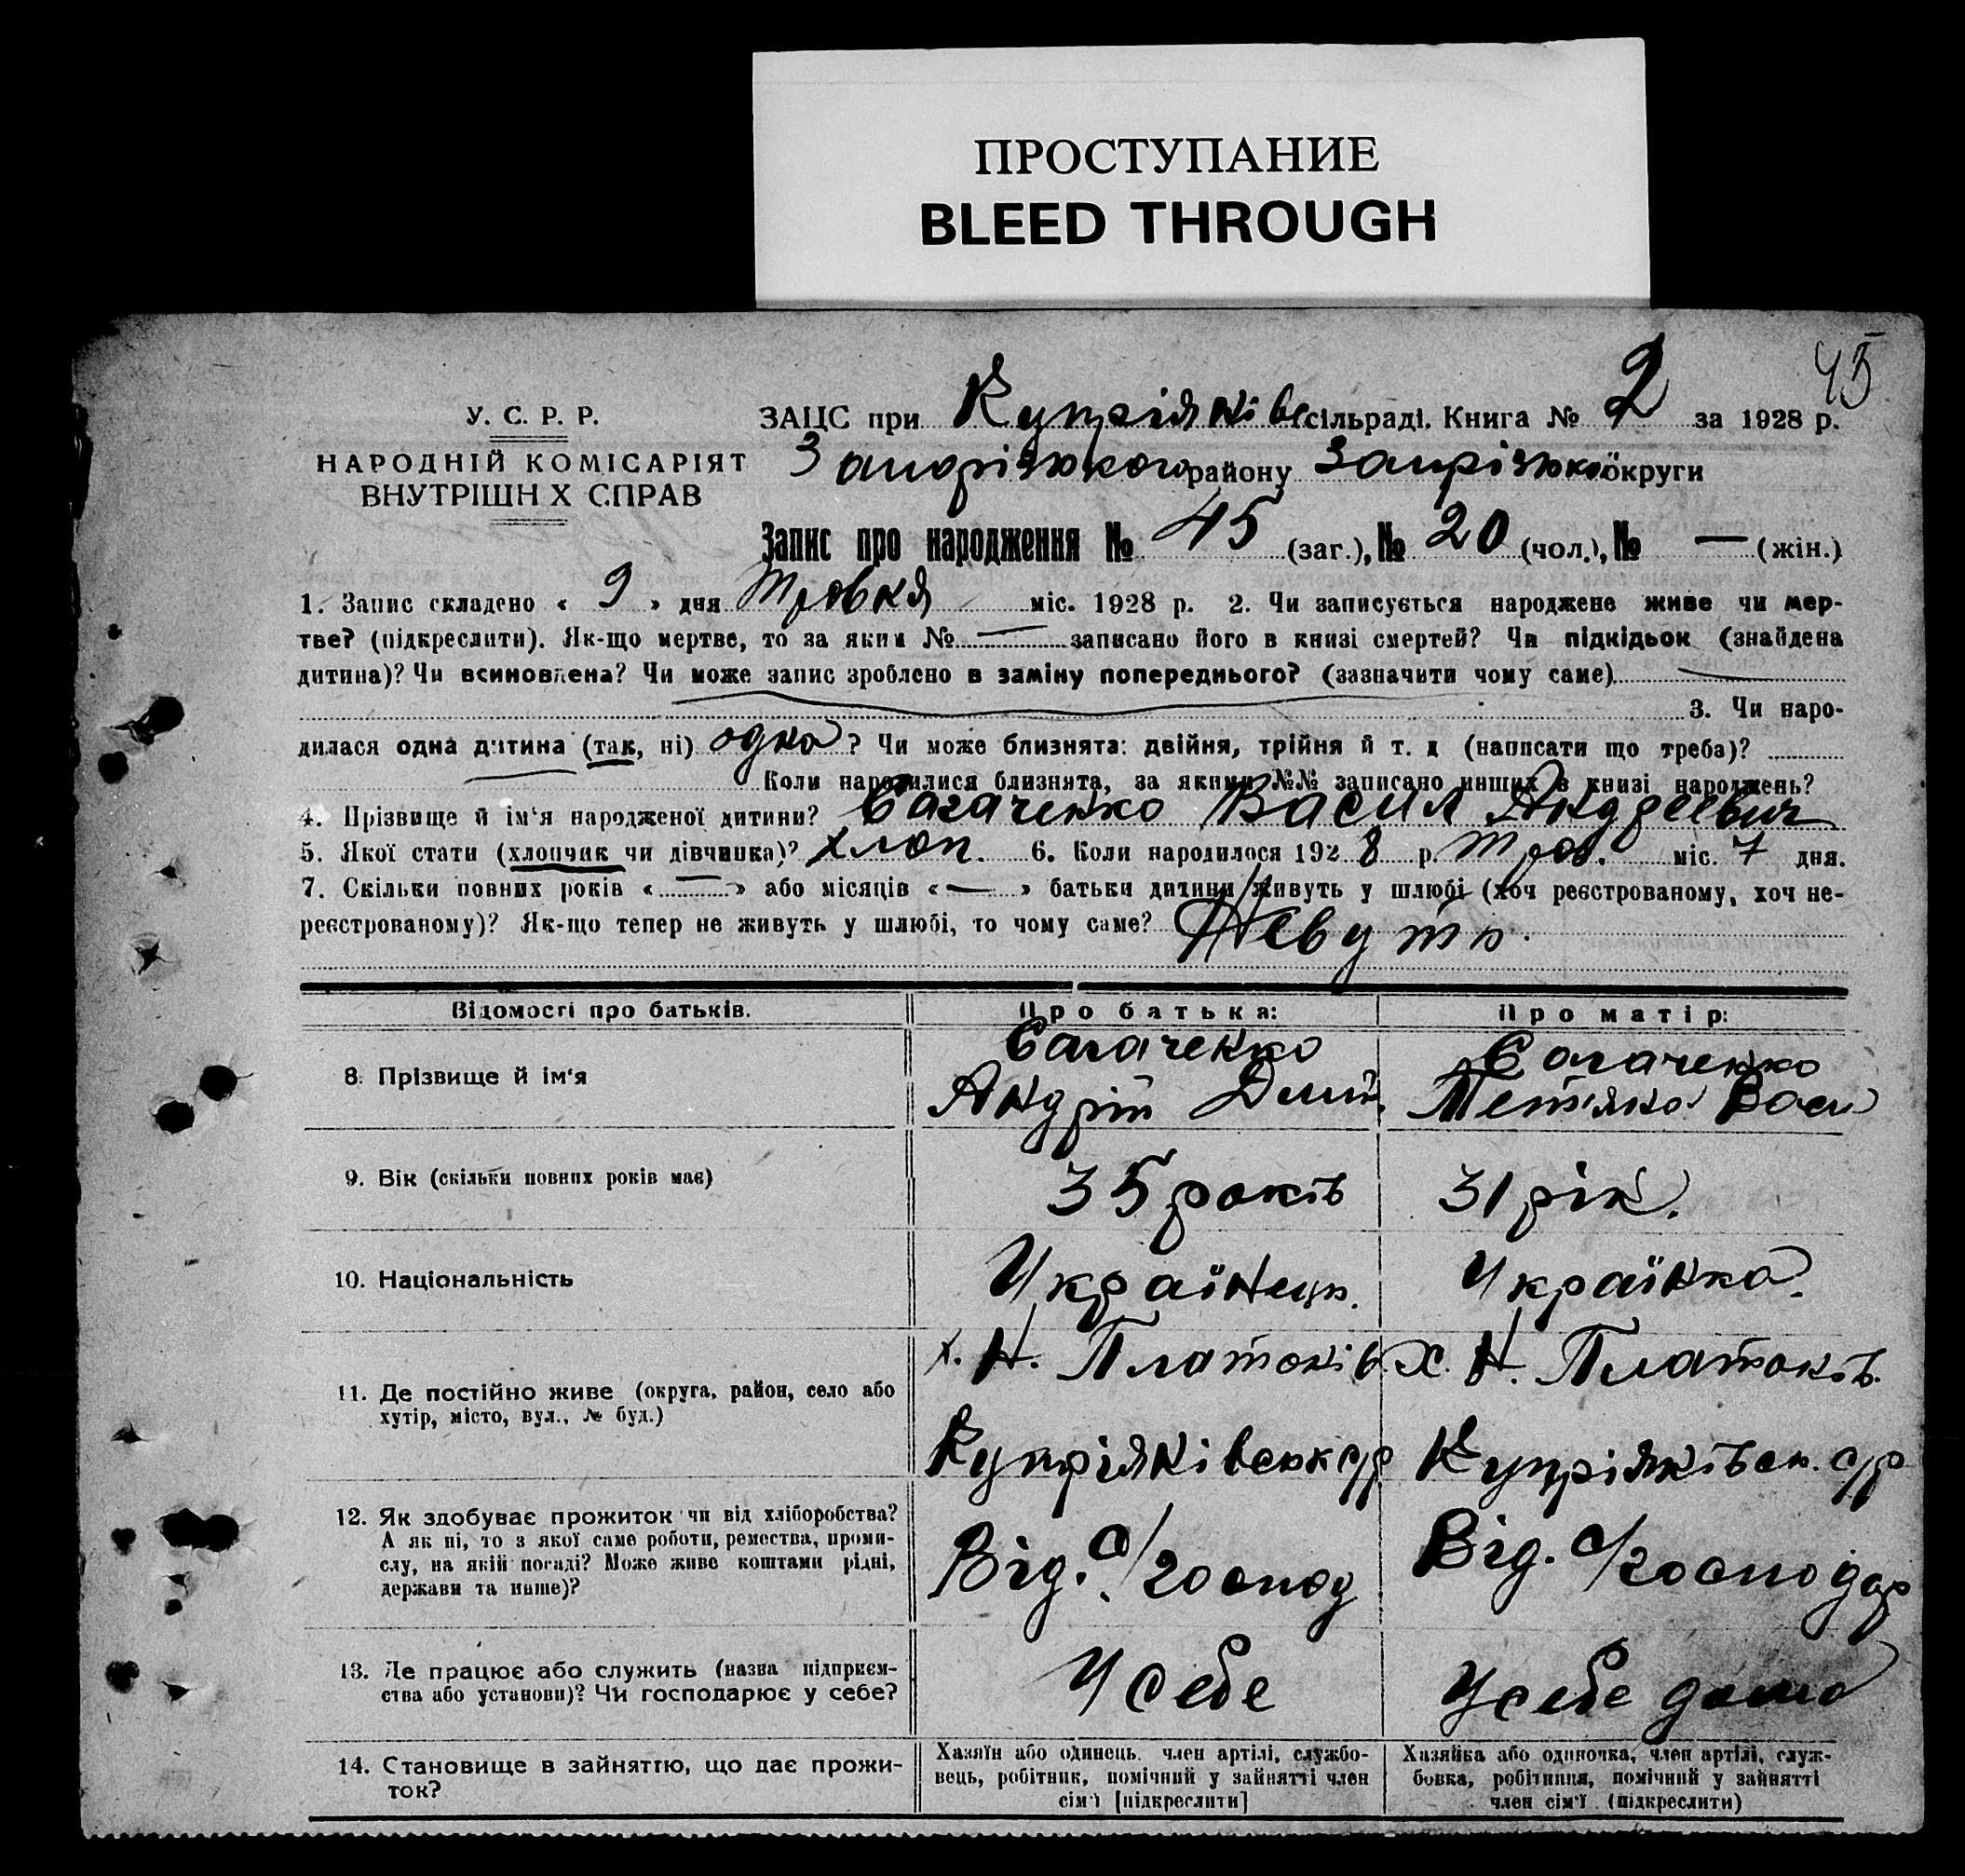 ПРОСТУПАНИЕ
BLEED THROUGH
45
У. С. Р. Р.
НАРОДНІЙ КОМІСАРІЯТ
ВНУТРІШН Х СПРАВ
ЗАЦС при Купріянівс сільраді. Книга № 2 за 1928 р.
Запоріжжського району Запріжської округи
Запис про народження № 45 (заг.), № 20 (чол.), № — (жін.)
1. Запис складено « 9 » дня Травня міс. 1928 р. 2. Чи записується народжене живе чи мер-
тве? (підкреслити). Як-що мертве, то за яким № — записано його в книзі смертей? Чи підкідьок (знайдена
дитина)? Чи всиновлена? Чи може запис зроблено в заміну попереднього? (зазначити чому саме)
3. Чи наро-
дилася одна дитина (так, ні) одна ? Чи може близнята: двійня, трійня й т. д (написати що треба)?
Коли народилися близнята, за якими №№ записано инших в книзі народжень?
4. Прізвище й ім'я народженої дитини? Сагаченко Васил Андреевич
5. Якої статі (хлопчик чи дівчинка)? хлоп. 6. Коли народилося 1928 р. Трав. міс. 7 дня.
7. Скільки повних років « — » або місяців « — » батьки дитини живуть у шлюбі (хоч реєстрованому, хоч не-
реєстрованому)? Як-що тепер не живуть у шлюбі, то чому саме? Невуть.
Відомості про батьків. Про батька: Про матір:
8. Прізвище й ім'я
Сагаченко
Андрій Дмит.
Сагаченко
Тетяна Васи
9. Вік (скільки повних років має) 35 років 31 рік.
10. Національність Українець. Українка.
11. Де постійно живе (округа, район, село або
хутір, місто, вул., № буд.)
х. Н. Платонів
Купріянівськ с/р
Х. Н. Платонів.
Купріянівсн. с/р
12. Як здобуває прожиток чи від хліборобства?
А як ні, то з якої саме роботи, ремества, проми-
слу, на якій посаді? Може живе коштами рідні,
держави та инше)?
Від. с/господ
Від. с/господар
13. Де працює або служить (назва підприєм-
ства або установи)? Чи господарює у себе?
У себе
У себе дома
14. Становище в зайняттю, що дає прожи-
ток?
Хазяїн або одинець, член артілі, службо-
вець, робітник, помічний у зайнятті член
сім'ї [підкреслити]
Хазяйка або одиночка, член артілі, служ-
бовка, робітниця, помічний у зайнятті
член сім'ї (підкреслити)